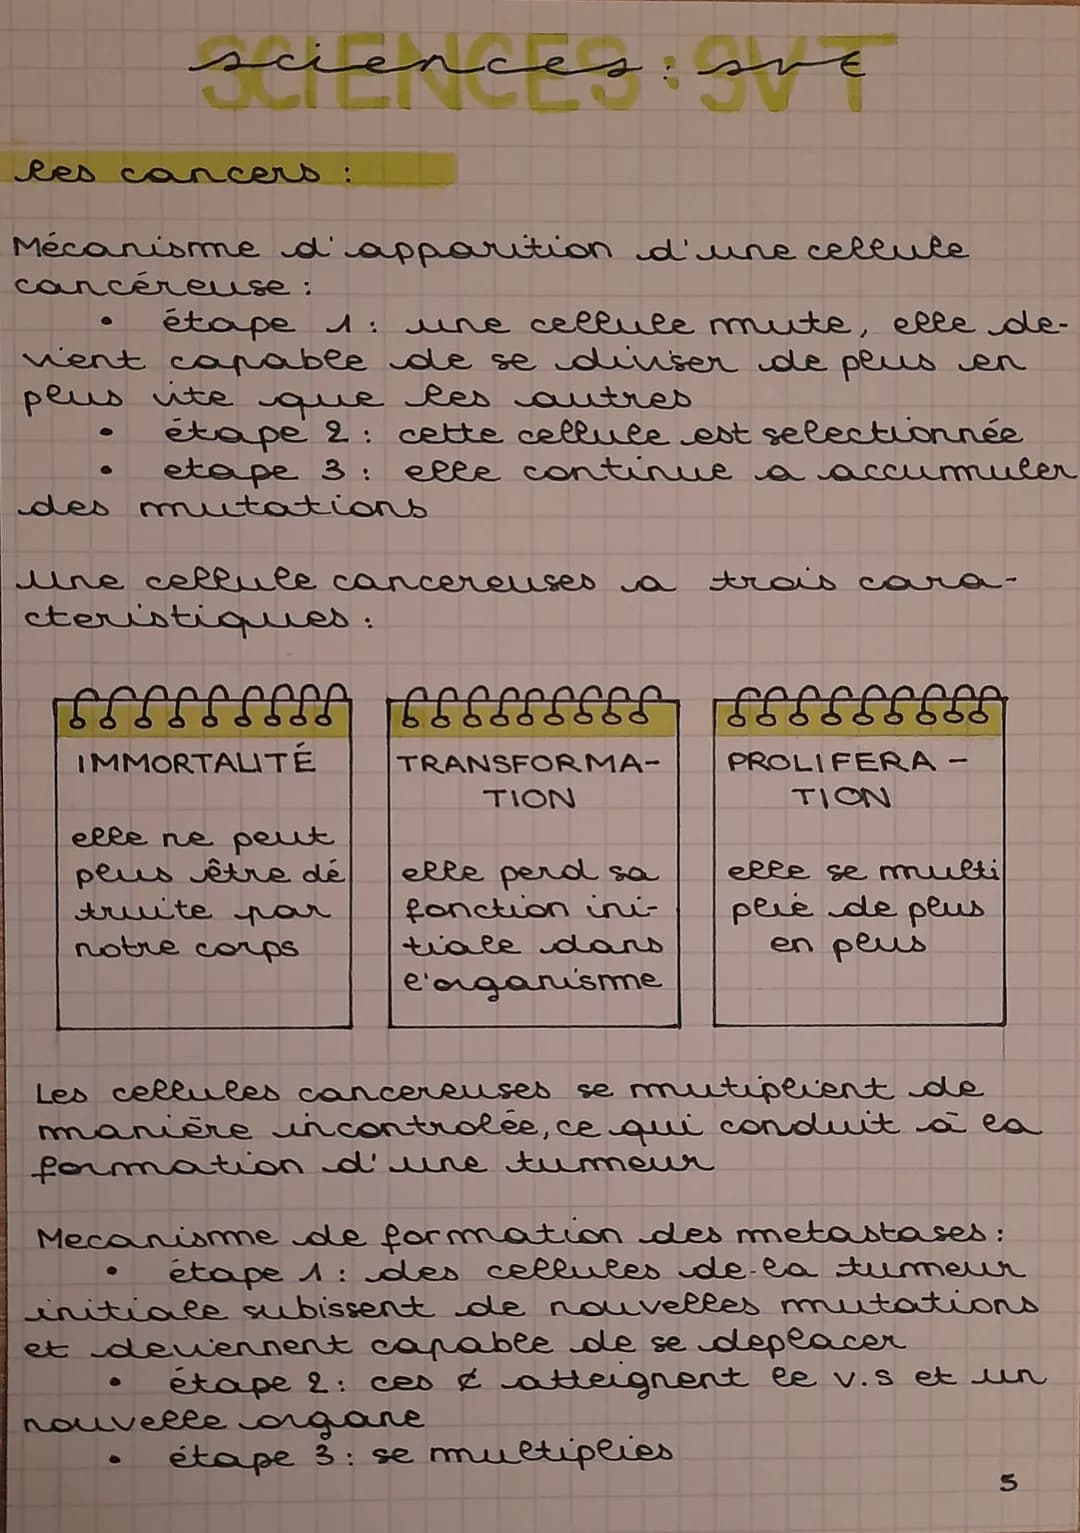 SCIENCES : SVT
sciences : svt
les cancers :
Mécanisme d'apparition d'une cellule
cancéreuse :
• étape 1 : une cellule mute, elle de-
vient capable de se diviser de plus en
plus vite que les autres
• étape 2 : cette cellule est selectionnée
• etape 3 : elle continue a accumuler
des mutations
une cellule cancereuses a trois cara-
cteristiques :
IMMORTALITÉ
elle ne peut
plus être dé
truite par
notre corps
TRANSFORMA-
TION
elle perd sa
fonction ini-
tiale dans
l'organisme
PROLIFERA-
TION
elle se multi
plie de plus
en plus
Les cellules cancereuses se mutiplient de
manière incontrolée, ce qui conduit à la
formation d'une tumeur
Mecanisme de formation des metastases :
• étape 1 : des cellules de la tumeur
initiale subissent de nouvelles mutations
et deviennent capable de se deplacer
• étape 2 : ces ¢ atteignent le v.s et un
nouvelle organe
• étape 3 : se multiplies
5